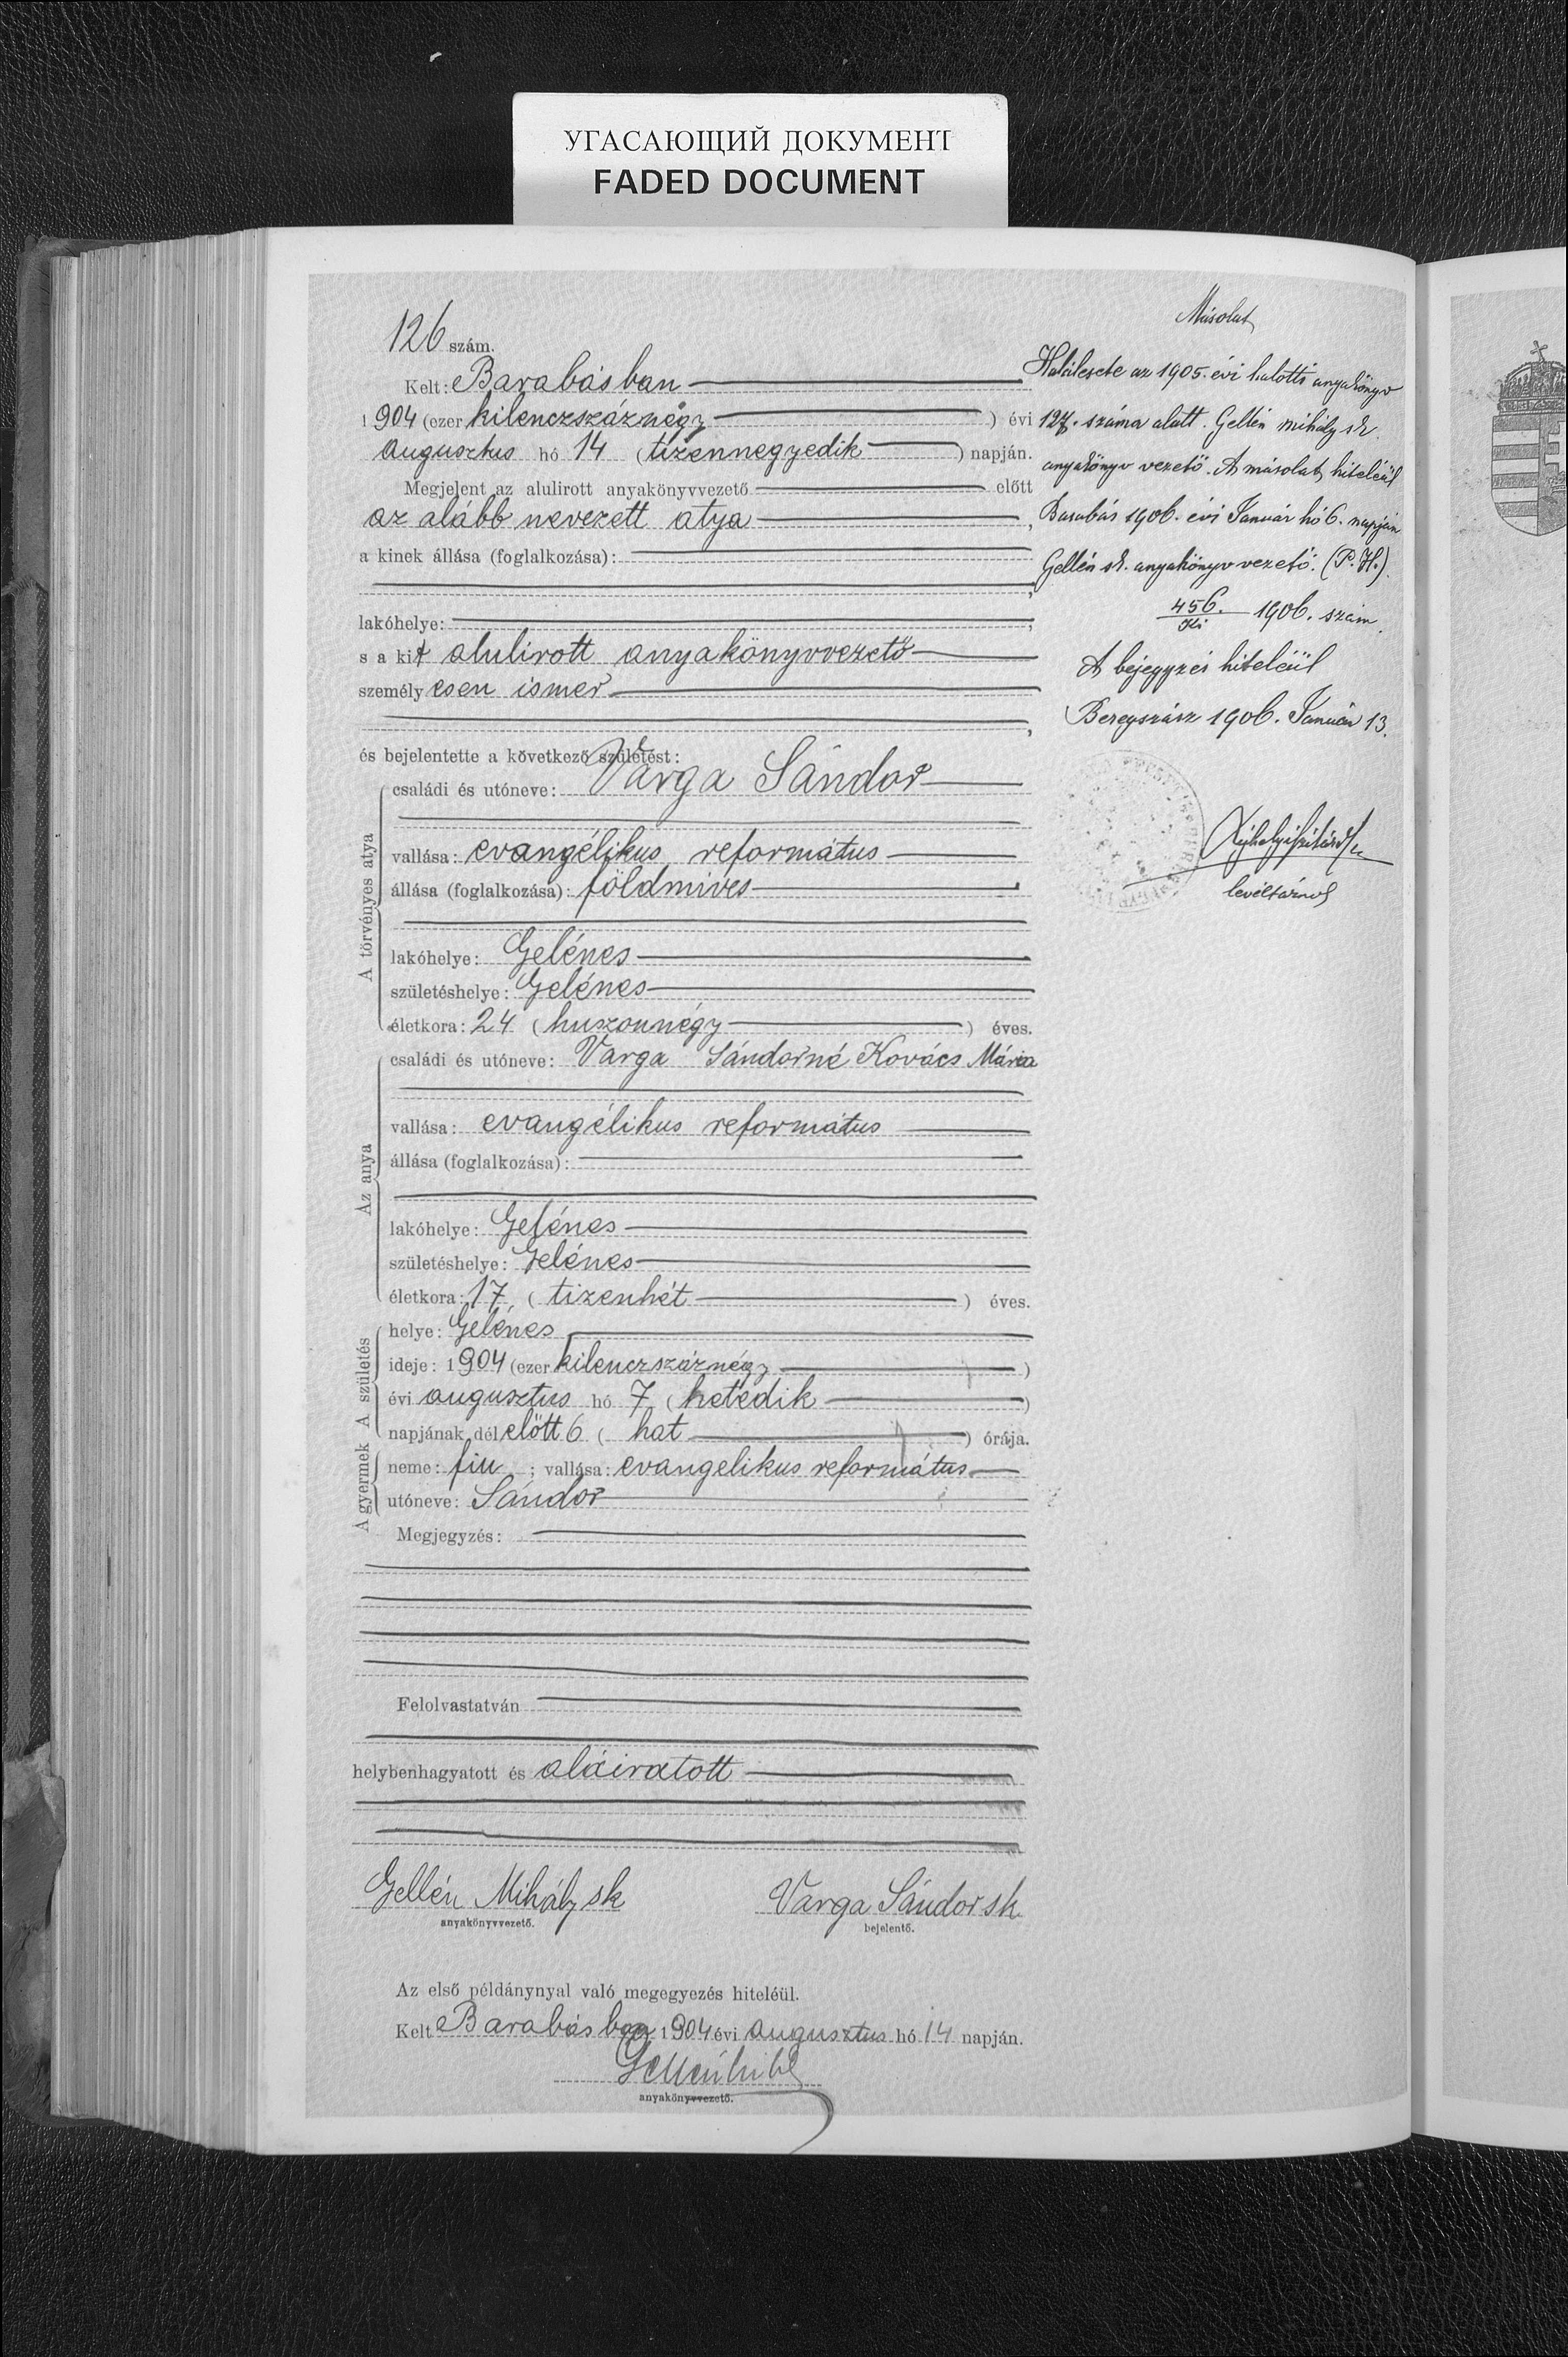 УГАСАЮЩИЙ ДОКУМЕНТ
FADED DOCUMENT
126 szám.
Kelt: Barabásban
1904 (ezer kilenczszáznégy ) évi
augusztus hó 14 (tizennegyedik ) napján.
Megjelent az alulirott anyakönyvvezető előtt
az alább nevezett atya ,
a kinek állása (foglalkozása):
,
lakóhelye: ,
s a kit alulirott anyakönyvvezető
személyesen ismer
,
és bejelentette a következő születést:
A törvényes atya
családi és utóneve: Varga Sándor
vallása: evangélikus református
állása (foglalkozása): földmives
lakóhelye: Gelénes
születéshelye: Gelénes
életkora: 24 (huszonnégy ) éves.
Az anya
családi és utóneve: Varga Sándorné Kovács Mária
vallása: evangélikus református
állása (foglalkozása):
lakóhelye: Gelénes
születéshelye: Gelénes
életkora: 17 (tizenhét ) éves.
A születés
helye: Gelénes
ideje: 1904 (ezer kilenczszáznégy )
évi augusztus hó 7 (hetedik )
napjának délelőtt 6 (hat ) órája.
A gyermek
neme: fiu ; vallása: evangelikus református
utóneve: Sándor
Megjegyzés:
Felolvastatván
helybenhagyatott és aláiratott
Gellén Mihály sk
anyakönyvvezető.
Varga Sándor sk.
bejelentő.
Az első példánynyal való megegyezés hiteléül.
Kelt Barabásban 1904 évi augusztus hó 14 napján.
Gellén Mihály
anyakönyvvezető.
Másolat
Halálesete az 1905. évi halotti anyakönyv
127. száma alatt. Gellén Mihály sk.
anyakönyv vezető. A másolat hiteléül
Barabás 1906. évi Január hó 6. napján
Gellén sk. anyakönyvvezető. (P. H.)
456. 1906. szám.
Ki
A bejegyzés hiteléül
Beregszász 1906. Január 13.
levéltárnok